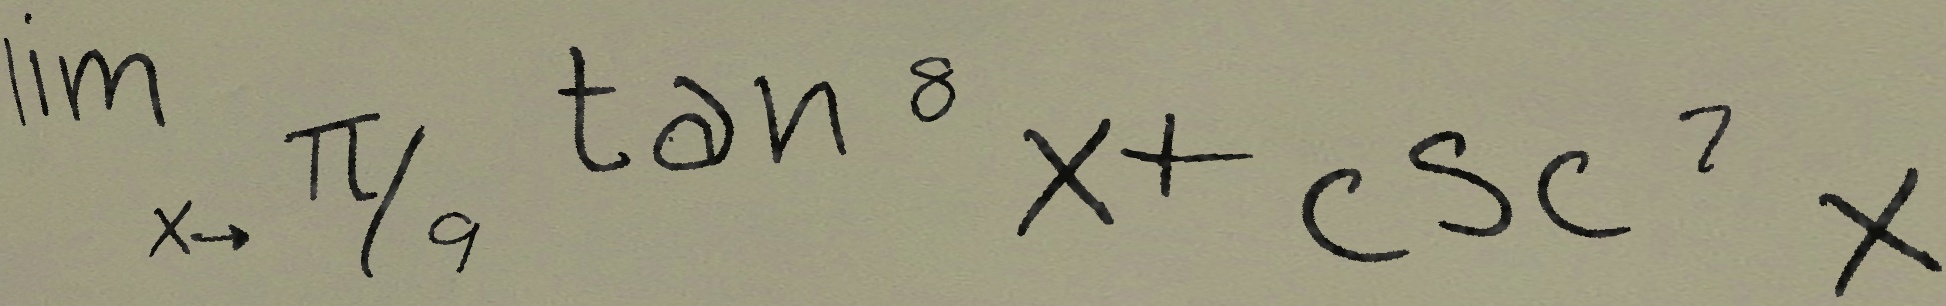 lim x→ π/9 tan^8 x + csc^7 x